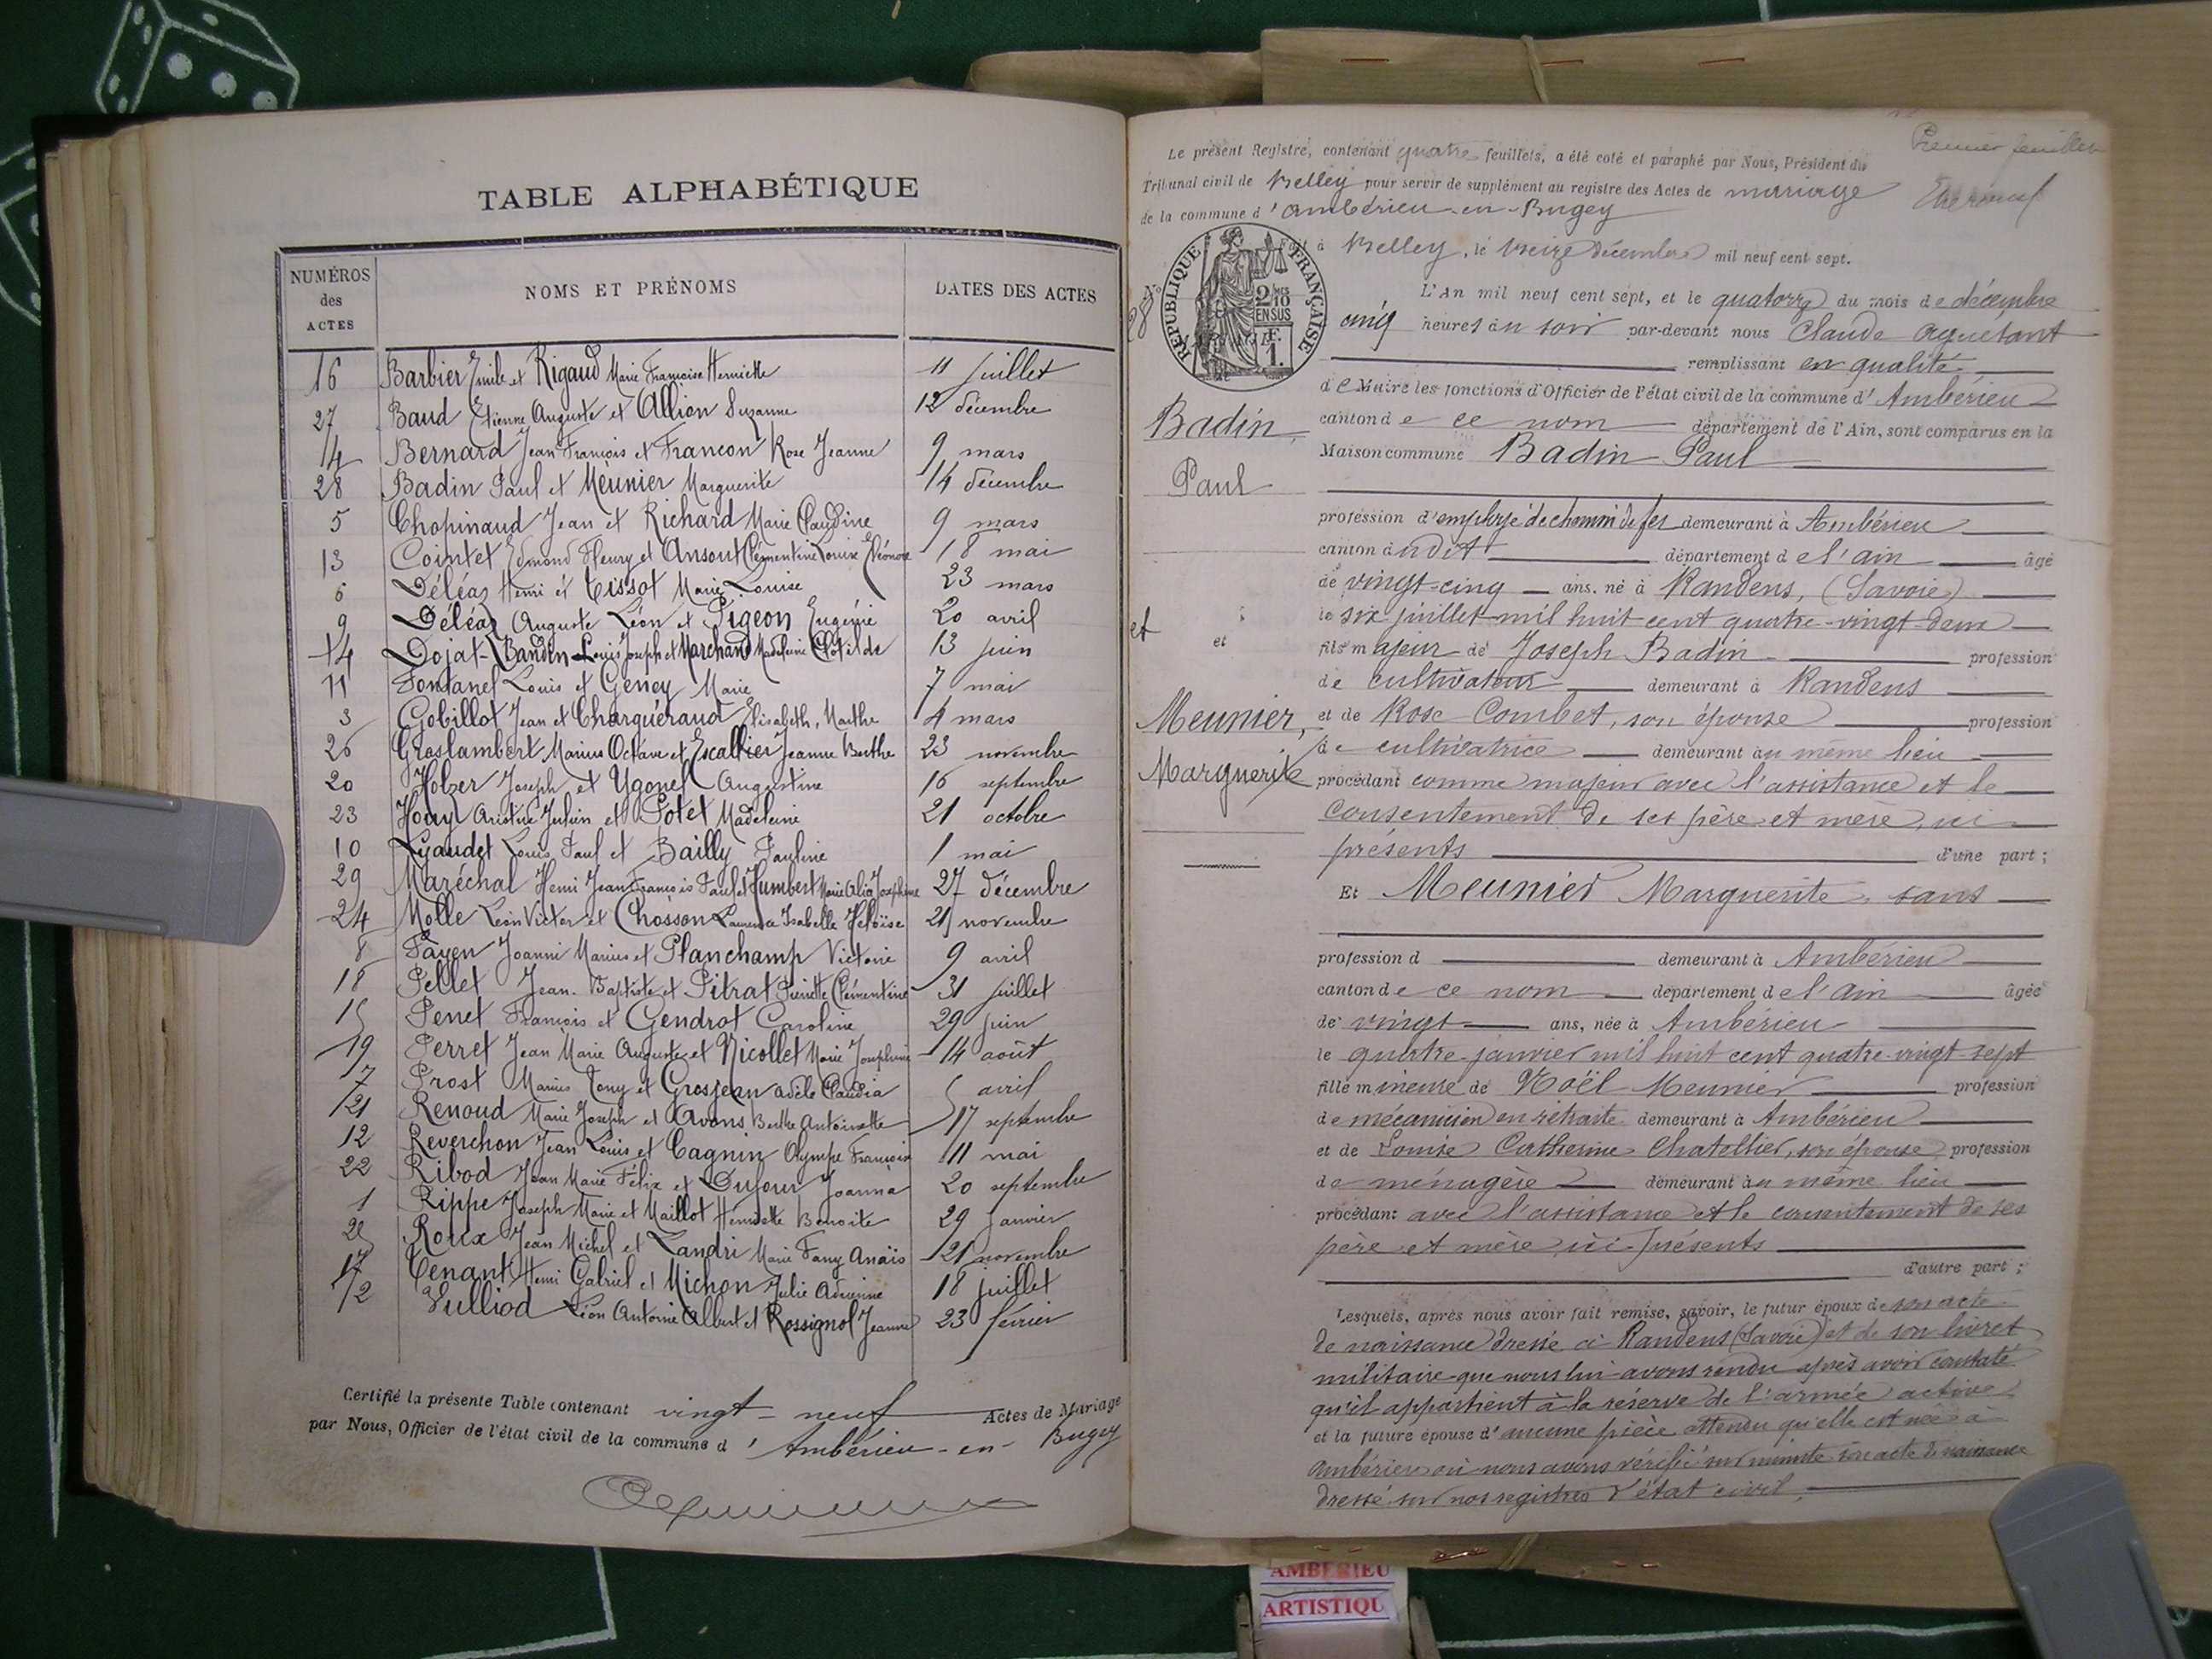 TABLE ALPHABÉTIQUE
NUMÉROS des ACTES NOMS ET PRÉNOMS DATES DES ACTES
16 Barbier Emile et Rigaud Marie Françoise Henriette 11 juillet
27 Baud Etienne Auguste et Allion Suzanne 12 décembre
14 Bernard Jean François et Francon Rose Jeanne 9 mars
28 Badin Paul et Meunier Marguerite 14 décembre
5 Chopinaud Jean et Richard Marie Claudine 9 mars
13 Cointet Edmond Fleury et Ansout Clémentine Louise Eléonore 18 mai
6 Déléaz Henri et Tissot Marie Louise 23 mars
9 Déléaz Auguste Léon et Pigeon Eugénie 20 avril
14 Dojat-Bandin Louis Joseph et Marchand Madeleine Clotilde 13 juin
11 Fontanel Louis et Geney Marie 7 mai
3 Gobillot Jean et Charguéraud Elisabeth, Marthe 4 mars
26 Graslambert Marius Octave et Escallier Jeanne Berthe 23 novembre
20 Holzer Joseph et Ugonel Augustine 16 septembre
23 Houy Julien et Potet Madeleine 21 octobre
10 Lyaudet Louis Paul et Bailly Pauline 1 mai
29 Maréchal Henri Jean François Paul et Humbert Marie Joséphine 27 décembre
24 Molle Léon Victor et Chosson Laurence Isabelle Héloïse 21 novembre
8 Payen Joanni Marius et Planchamp Victorie 9 avril
18 Pellet Jean-Baptiste et Pitrat Pierrette Clémentine 31 juillet
15 Penet François et Gendrot Caroline 29 juin
19 Perret Jean Marie Auguste et Nicollet Marie Joséphine 14 août
7 Prost Marius Tony et Grosjean Adèle Claudia 5 avril
21 Renoud Marie Joseph et Avons Berthe Antoinette 17 septembre
12 Reverchon Jean Louis et Cagnin Olympe 11 mai
22 Ribod Jean Marie Félix et Dufour Joanna 20 septembre
1 Rippe Joseph Marie et Maillot Henriette Benoite 29 janvier
25 Roux Jean Michel et Landri Marie Fany Anaïs 21 novembre
17 Tenant Henri Gabriel et Michon Julie Adrienne 18 juillet
2 Vulliod Léon Antoine Albert et Rossignol Jeanne 23 février
Certifié la présente Table contenant vingt-neuf Actes de Mariage
par Nous, Officier de l'état civil de la commune d'Ambérieu-en-Bugey
Premier feuillet
Le présent Registre, contenant quatre feuillets, a été coté et paraphé par Nous, Président du
Tribunal civil de Belley pour servir de supplément au registre des Actes de mariage
de la commune d'Ambérieu-en-Bugey
Fait à Belley, le treize décembre mil neuf cent sept.
RÉPUBLIQUE FRANÇAISE
2 10 EN SUS
1 F.
N° 28
L'An mil neuf cent sept, et le quatorze du mois de décembre
cinq heures du soir par-devant nous Claude Aguetant
remplissant en qualité
de Maire les fonctions d'Officier de l'état civil de la commune d'Ambérieu
canton de ce nom département de l'Ain, sont comparus en la
Maison commune Badin Paul
Badin,
Paul
profession d'employé de chemin de fer demeurant à Ambérieu
canton dudit département de l'Ain âgé
de vingt-cinq ans, né à Randens, (Savoie)
le six juillet mil huit cent quatre-vingt-deux
et
et
fils majeur de Joseph Badin profession
de cultivateur demeurant à Randens
Meunier,
Marguerite
et de Rose Combet, son épouse profession
de cultivatrice demeurant au même lieu
procédant comme majeur avec l'assistance et le
consentement de ses père et mère, ici
présents d'une part;
Et Meunier Marguerite, sans
profession d demeurant à Ambérieu
canton de ce nom département de l'Ain âgée
de vingt ans, née à Ambérieu
le quatre janvier mil huit cent quatre-vingt-sept
fille mineure de Noël Meunier profession
de mécanicien en retraite demeurant à Ambérieu
et de Louise Catherine Chatellier, son épouse profession
de ménagère demeurant au même lieu
procédant avec l'assistance et le consentement de ses
père et mère ici présents
d'autre part;
Lesquels, après nous avoir fait remise, savoir, le futur époux de son acte
de naissance dressé à Randens (Savoie) et de son livret
militaire que nous lui avons rendu après avoir constaté
qu'il appartient à la réserve de l'armée active
et la future épouse d'aucune pièce attendu qu'elle est née à
Ambérieu où nous avons vérifié sur minute son acte de naissance
dressé sur nos registres d'état civil.
AMBERIEU
ARTISTIQU